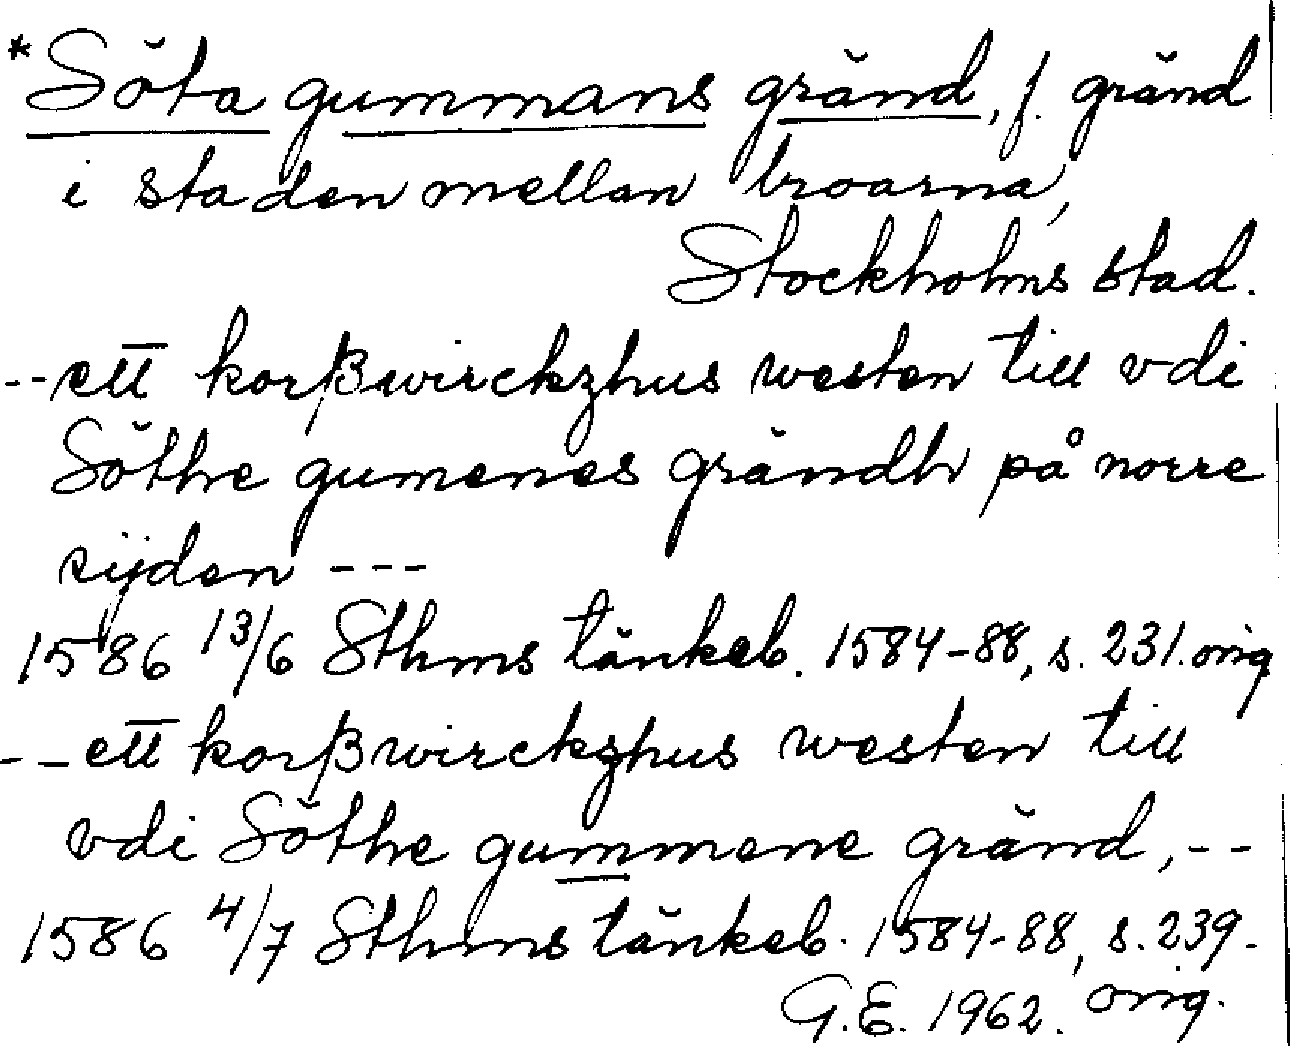 *Söta gummans gränd, f. gränd
i staden mellan broarna,
Stockholms stad.
-- ett korßwirckzhus westen till vdi
Söthe gumenes grändh på norre
sijden ---
1586 13/6 Sthms tänkeb. 1584-88, s. 231. orig
-- ett korßwirckzhus westen till
vdi Söthe gummene gränd, --
1586 4/7 Sthms tänkeb. 1584-88, s. 239.
G.E. 1962. orig.